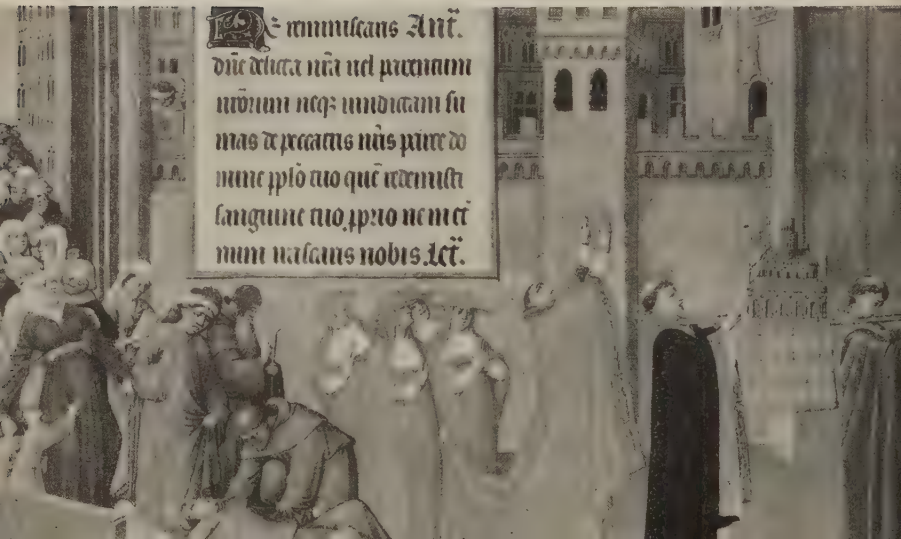 Ne reminiscaris Ant̄.
dn̄e delicta nr̄a uel parentum
nr̄orum neqꝫ uindictam su
mas de peccatis nr̄is parce do
mine pplō tuo quē redemisti
sanguine tuo pprio ne in et̄
num irascaris nobis